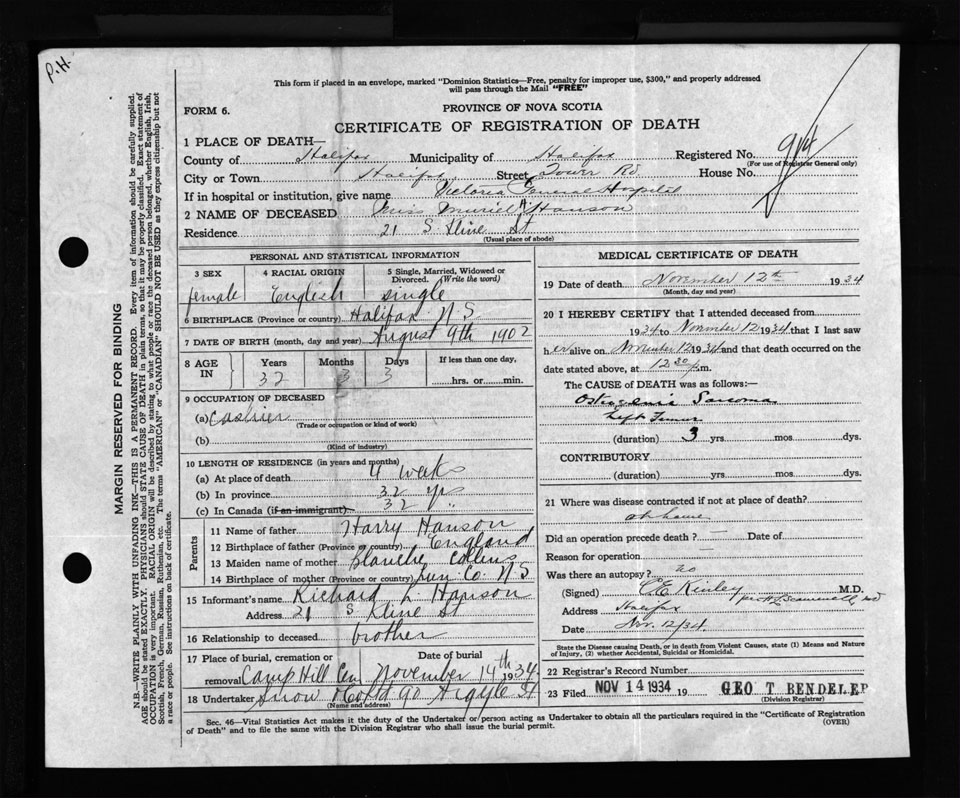 P.H.
This form if placed in an envelope, marked "Dominion Statistics—Free, penalty for improper use, $300," and properly addressed
will pass through the Mail "FREE"
FORM 6.
PROVINCE OF NOVA SCOTIA
CERTIFICATE OF REGISTRATION OF DEATH
1 PLACE OF DEATH—
County of Halifax Municipality of Halifax Registered No. 914
(For use of Registrar General only)
City or Town Halifax Street Tower Rd House No.
If in hospital or institution, give name Victoria General Hospital
2 NAME OF DECEASED Miss Muriel A Hanson
Residence 21 S Kline St
(Usual place of abode)
PERSONAL AND STATISTICAL INFORMATION
3 SEX 4 RACIAL ORIGIN 5 Single, Married, Widowed or Divorced. (Write the word)
female English single
6 BIRTHPLACE (Province or country) Halifax N S
7 DATE OF BIRTH (month, day and year) August 9th 1902
8 AGE IN Years Months Days If less than one day,
32 3 3 hrs. or min.
9 OCCUPATION OF DECEASED
(a) Cashier
(Trade or occupation or kind of work)
(b)
(Kind of industry)
10 LENGTH OF RESIDENCE (in years and months)
(a) At place of death 4 weeks
(b) In province 32 yrs
(c) In Canada (if an immigrant) 32 "
Parents
11 Name of father Harry Hanson
12 Birthplace of father (Province or country) England
13 Maiden name of mother Blanche Collins
14 Birthplace of mother (Province or country) Lun Co. N S
15 Informant's name Richard L Hanson
Address 21 S Kline St
16 Relationship to deceased brother
17 Place of burial, cremation or removal Date of burial
Camp Hill Cem November 14th 1934
18 Undertaker Snow & Co Ltd 90 Argyle St
(Name and address)
MEDICAL CERTIFICATE OF DEATH
19 Date of death November 12th 1934
(Month, day and year)
20 I HEREBY CERTIFY that I attended deceased from
1934 to November 12 1934 that I last saw
her alive on November 12 1934 and that death occurred on the
date stated above, at 12 30 p.m.
The CAUSE OF DEATH was as follows:—
Osteogenic Sarcoma
Left Femur
(duration) 3 yrs. mos. dys.
CONTRIBUTORY
(duration) yrs. mos. dys.
21 Where was disease contracted if not at place of death?
at home
Did an operation precede death? — Date of
Reason for operation —
Was there an autopsy? no
(Signed) C E Kinley M.D.
Address Halifax
Date Nov. 12/34.
State the Disease causing Death, or in death from Violent Causes, state (1) Means and Nature
of Injury, (2) whether Accidental, Suicidal or Homicidal.
22 Registrar's Record Number
23 Filed NOV 14 1934 19 GEO T BENDELEP
(Division Registrar)
Sec. 46—Vital Statistics Act makes it the duty of the Undertaker or person acting as Undertaker to obtain all the particulars required in the "Certificate of Registration
of Death" and to file the same with the Division Registrar who shall issue the burial permit. (OVER)
MARGIN RESERVED FOR BINDING
N.B.—WRITE PLAINLY WITH UNFADING INK—THIS IS A PERMANENT RECORD. Every item of information should be carefully supplied.
AGE should be stated EXACTLY. PHYSICIANS should STATE CAUSE OF DEATH in plain terms, so that it may be properly classified. Exact statement of
OCCUPATION is very important. RACIAL ORIGIN will be described by stating to what people or race the deceased person belonged, whether English, Irish,
Scottish, French, German, Russian, Ruthenian, etc. The terms "AMERICAN" or "CANADIAN" SHOULD NOT BE USED as they express citizenship but not
a race or people. See instructions on back of certificate.